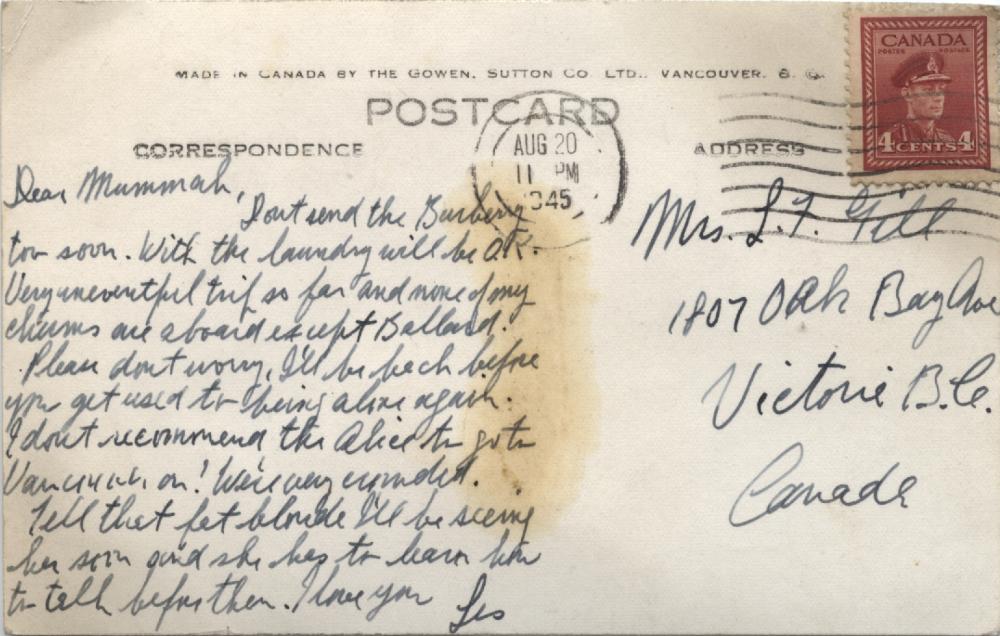 MADE IN CANADA BY THE GOWEN, SUTTON CO. LTD., VANCOUVER, B. C.
POSTCARD
CORRESPONDENCE
ADDRESS
AUG 20
11 PM
1945
CANADA
POSTES POSTAGE
4 CENTS 4
Dear Mummah,
Dont send the Burberry
too soon. With the laundry will be O.K.
Very uneventful trip so far and none of my
chums are aboard except Ballard.
Please dont worry, I'll be back before
you get used to being alone again.
I dont recommend the Alice to go to
Vancouver on! We're very crowded.
Tell that fat blonde I'll be seeing
her soon and she has to learn how
to talk before then. I love you
Les
Mrs. L. F. Gill
1807 Oak Bay Ave
Victoria B.C.
Canada